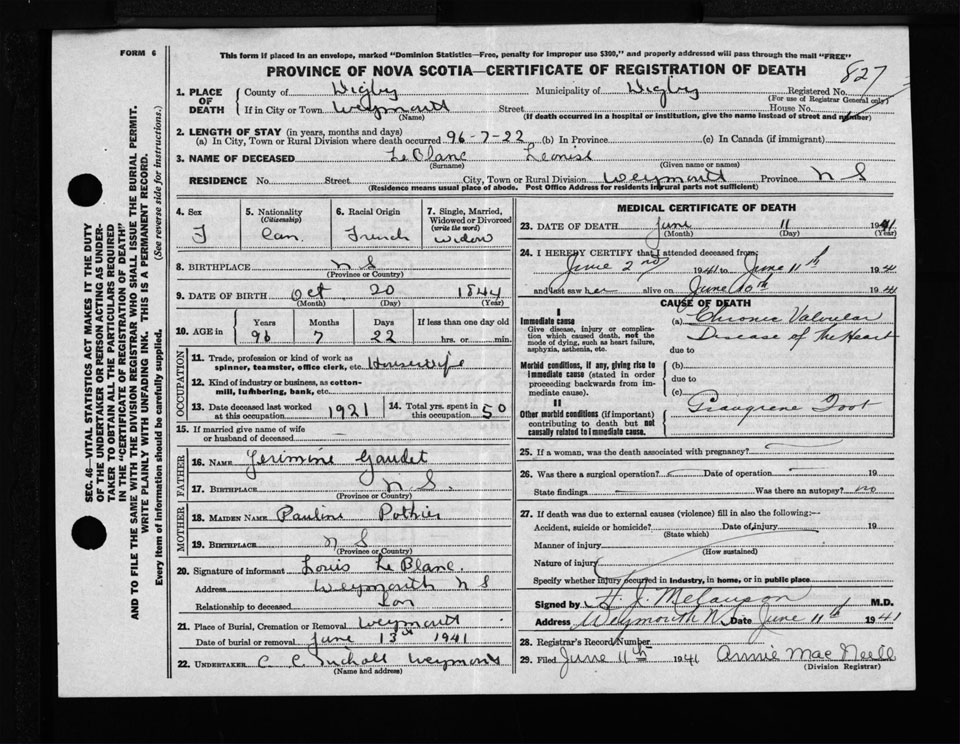 FORM 6
This form if placed in an envelope, marked "Dominion Statistics—Free, penalty for improper use $300," and properly addressed will pass through the mail "FREE"
PROVINCE OF NOVA SCOTIA—CERTIFICATE OF REGISTRATION OF DEATH
827
1. PLACE OF DEATH County of Digby Municipality of Digby Registered No.
(For use of Registrar General only)
If in City or Town Weymouth Street House No.
(Name) (If death occurred in a hospital or institution, give the name instead of street and number)
2. LENGTH OF STAY (in years, months and days)
(a) In City, Town or Rural Division where death occurred 96-7-22 (b) In Province (c) In Canada (if immigrant)
3. NAME OF DECEASED LeBlanc
(Surname) (Given name or names)
RESIDENCE No. Street City, Town or Rural Division Weymouth Province N S
(Residence means usual place of abode. Post Office Address for residents in rural parts not sufficient)
4. Sex F
5. Nationality (Citizenship) Can.
6. Racial Origin French
7. Single, Married, Widowed or Divorced (write the word) Widow
8. BIRTHPLACE N S
(Province or Country)
9. DATE OF BIRTH Oct 20 1844
(Month) (Day) (Year)
10. AGE in Years Months Days If less than one day old
96 7 22 hrs. or min.
OCCUPATION
11. Trade, profession or kind of work as spinner, teamster, office clerk, etc. Housewife
12. Kind of industry or business, as cotton-mill, lumbering, bank, etc.
13. Date deceased last worked at this occupation 1921
14. Total yrs. spent in this occupation 50
15. If married give name of wife or husband of deceased —
FATHER
16. NAME Gaudet
17. BIRTHPLACE N S.
(Province or Country)
MOTHER
18. MAIDEN NAME Pauline Pothier
19. BIRTHPLACE N S
(Province or Country)
20. Signature of informant Louis LeBlanc.
Address Weymouth N S
Relationship to deceased Son
21. Place of Burial, Cremation or Removal Weymouth
Date of burial or removal June 13th 1941
22. UNDERTAKER C. C. Weymouth
(Name and address)
MEDICAL CERTIFICATE OF DEATH
23. DATE OF DEATH June 11 1941
(Month) (Day) (Year)
24. I HEREBY CERTIFY that I attended deceased from:
June 2nd 1941 to June 11th 1941
and last saw her alive on June 10th 1941
CAUSE OF DEATH
I
Immediate cause
Give disease, injury or complication which caused death, not the mode of dying, such as heart failure, asphyxia, asthenia, etc.
(a) Chronic Valvular
Disease of the Heart
due to
Morbid conditions, if any, giving rise to immediate cause (stated in order proceeding backwards from immediate cause).
(b)
due to
(c)
II
Other morbid conditions (if important) contributing to death but not causally related to immediate cause.
Gangrene Foot
25. If a woman, was the death associated with pregnancy?
26. Was there a surgical operation? Date of operation 19
State findings — Was there an autopsy? no
27. If death was due to external causes (violence) fill in also the following:—
Accident, suicide or homicide? Date of injury 19
(State which)
Manner of injury
(How sustained)
Nature of injury
Specify whether injury occurred in industry, in home, or in public place
Signed by M.D.
Address Weymouth N. Date June 11th 1941
28. Registrar's Record Number
29. Filed June 11th 1941 Annie MacNeill
(Division Registrar)
SEC. 46—VITAL STATISTICS ACT MAKES IT THE DUTY
OF THE UNDERTAKER OR PERSON ACTING AS UNDER-
TAKER TO OBTAIN ALL THE PARTICULARS REQUIRED
IN THE "CERTIFICATE OF REGISTRATION OF DEATH"
AND TO FILE THE SAME WITH THE DIVISION REGISTRAR WHO SHALL ISSUE THE BURIAL PERMIT.
WRITE PLAINLY WITH UNFADING INK. THIS IS A PERMANENT RECORD.
Every item of information should be carefully supplied. (See reverse side for instructions.)